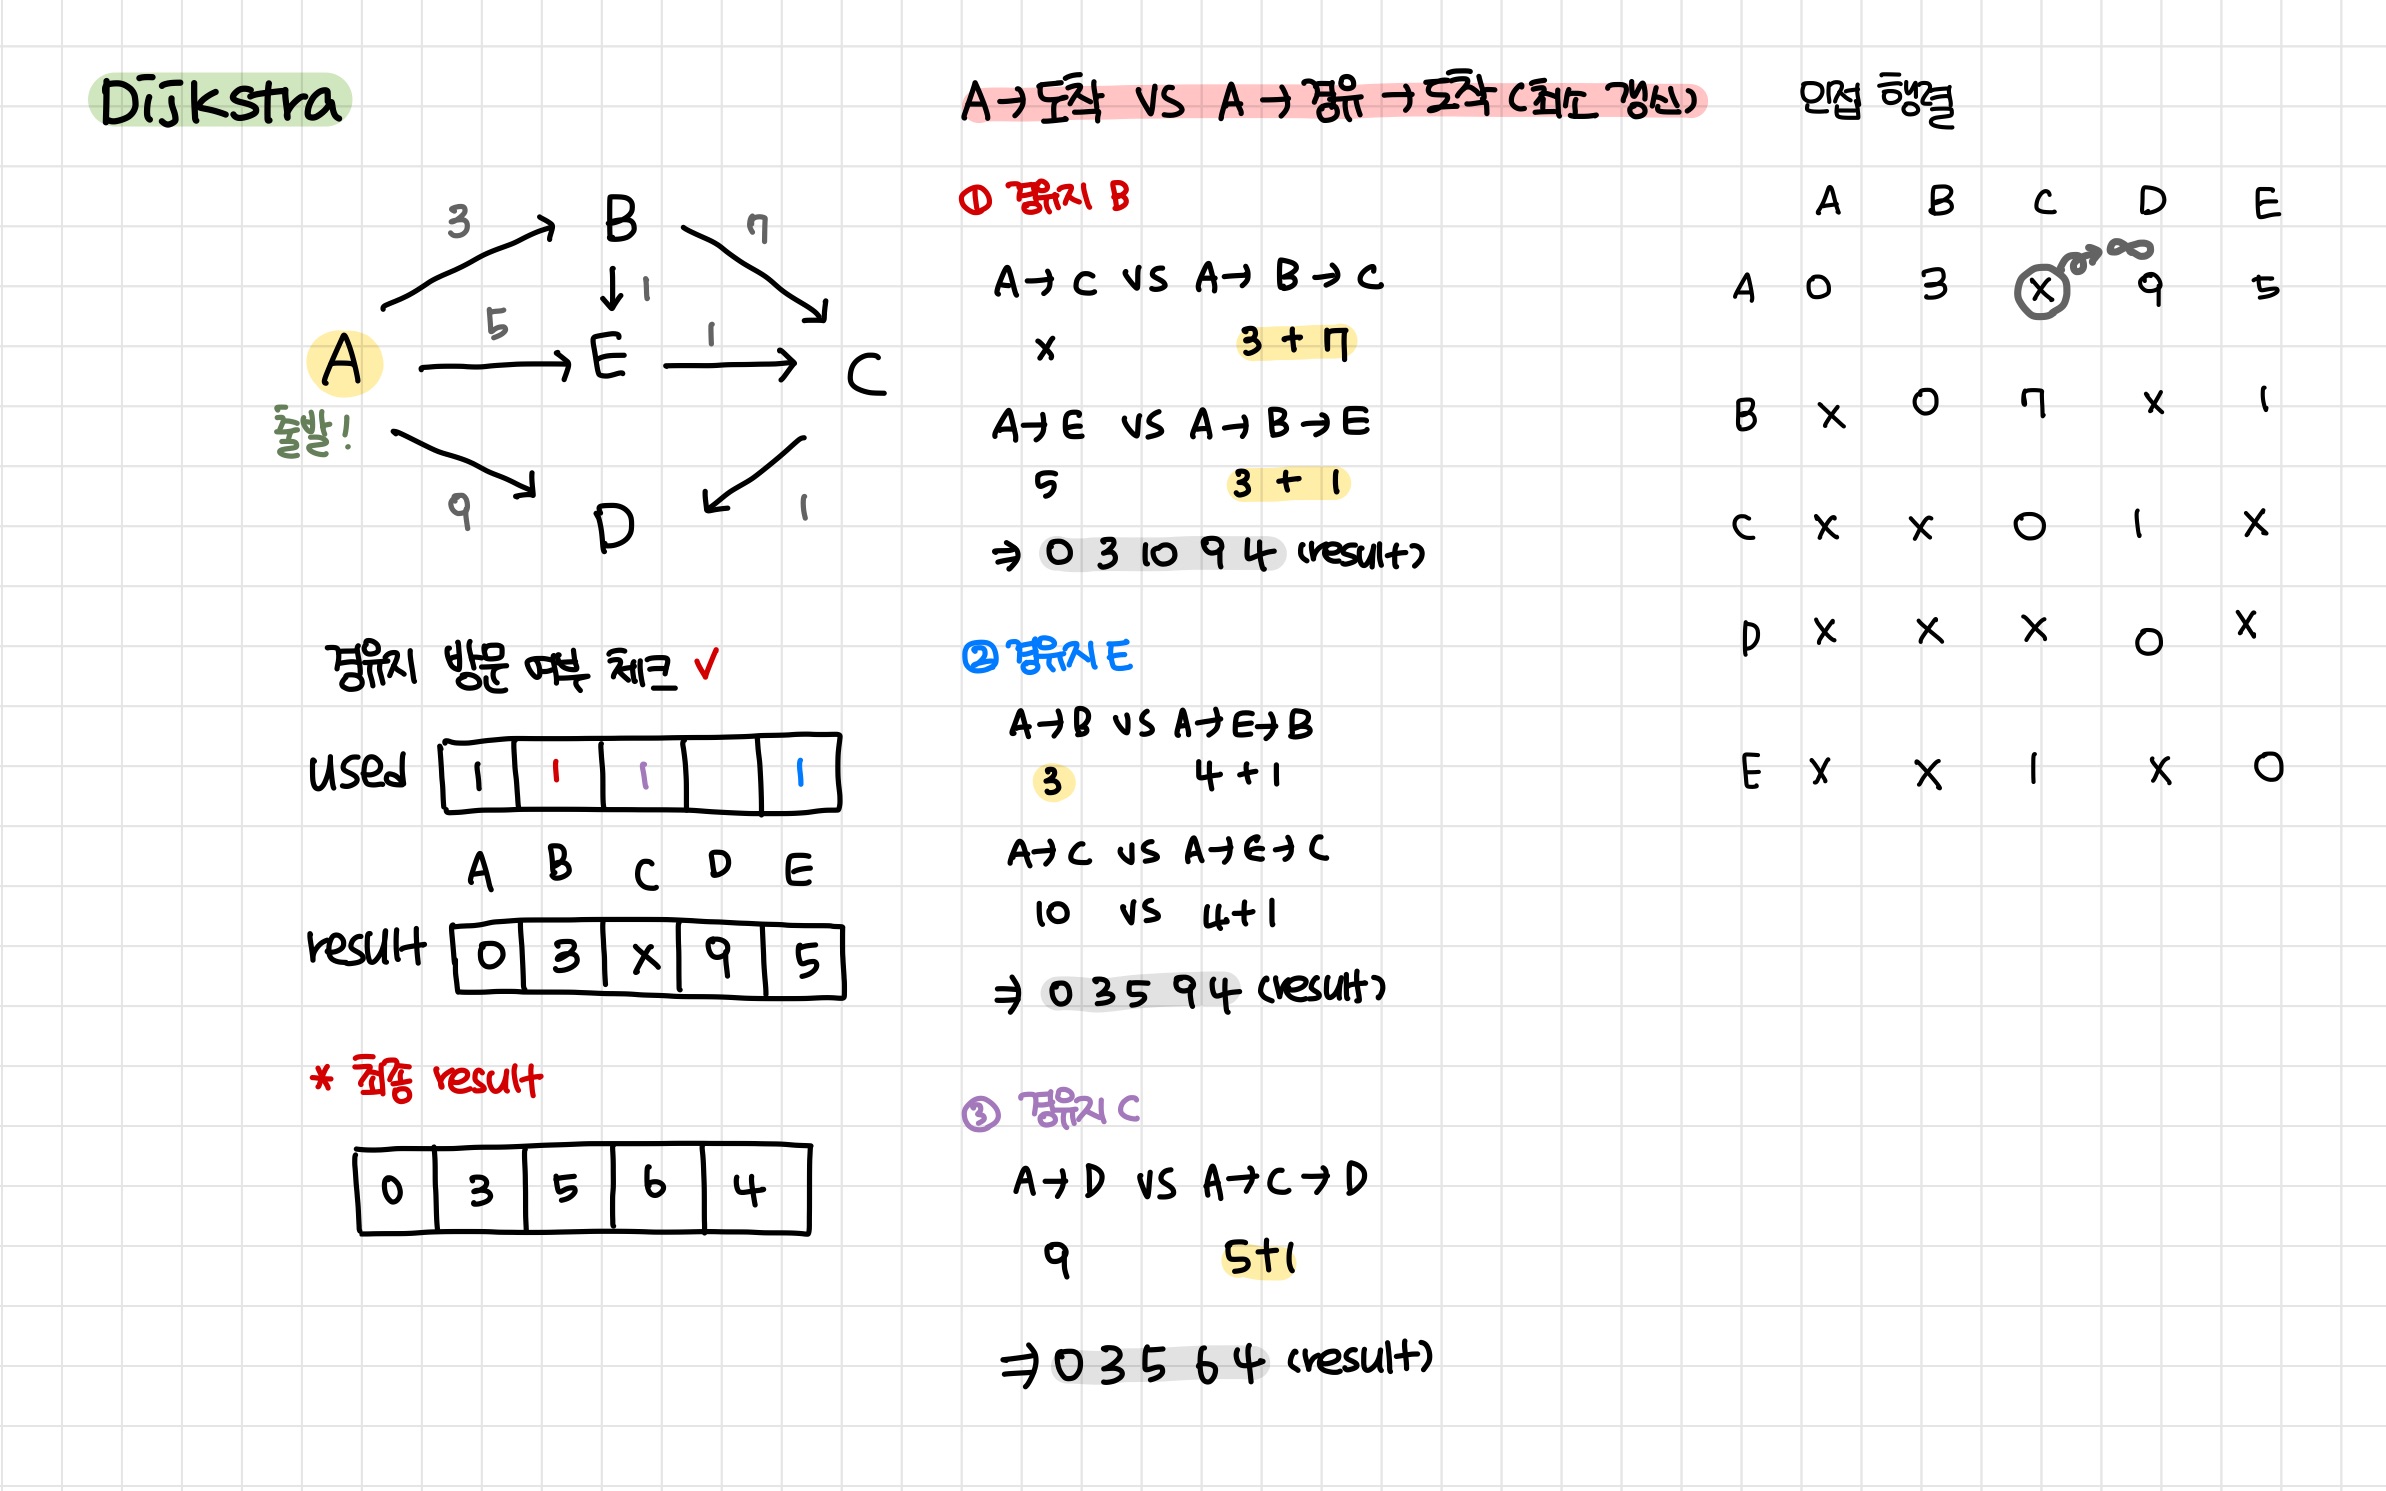 Dijkstra
3
B
7
1
5
1
A
E
C
출발!
9
D
1
경유지 방문 여부 체크 ✓
used 1 1 1 1
A B C D E
result 0 3 x 9 5
* 최종 result
0 3 5 6 4
A → 도착 VS A → 경유 → 도착 (최소 갱신)
① 경유지 B
A → C VS A → B → C
x 3 + 7
A → E VS A → B → E
5 3 + 1
⇒ 0 3 10 9 4 (result)
② 경유지 E
A → B VS A → E → B
3 4 + 1
A → C VS A → E → C
10 VS 4+1
⇒ 0 3 5 9 4 (result)
③ 경유지 C
A → D VS A → C → D
9 5+1
⇒ 0 3 5 6 4 (result)
인접 행렬
A B C D E
→ ∞
A 0 3 x 9 5
B x 0 7 x 1
C x x 0 1 x
D x x x 0 x
E x x 1 x 0